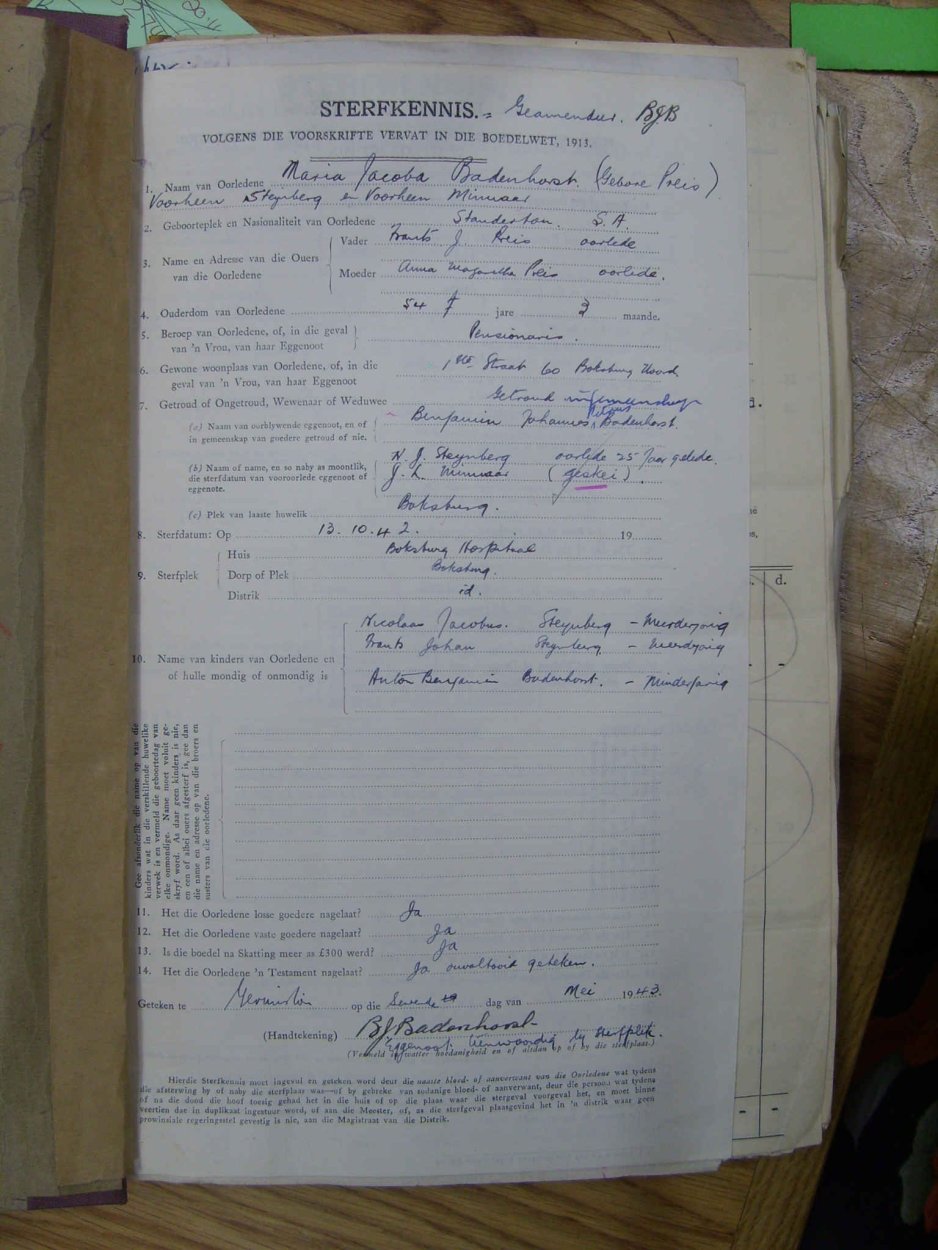 STERFKENNIS. = Geamendeer. BJB
VOLGENS DIE VOORSKRIFTE VERVAT IN DIE BOEDELWET, 1913.
1. Naam van Oorledene Maria Jacoba Badenhorst (Gebore Preis)
Voorheen Steynberg en Voorheen Minnaar
2. Geboorteplek en Nasionaliteit van Oorledene Standerton. S.A.
3. Name en Adresse van die Ouers van die Oorledene
Vader Frants J. Preis oorlede
Moeder Anna Magaretha Preis oorlede.
4. Ouderdom van Oorledene 54 jare 3 maande.
5. Beroep van Oorledene, of, in die geval
van 'n Vrou, van haar Eggenoot Pensionaris.
6. Gewone woonplaas van Oorledene, of, in die
geval van 'n Vrou, van haar Eggenoot 1ste Straat 60 Boksburg Noord.
7. Getroud of Ongetroud, Wewenaar of Weduwee Getroud in gemeenskap
(a) Naam van oorblywende eggenoot, en of
in gemeenskap van goedere getroud of nie. Benjamin Johannes Petrus Badenhorst.
(b) Naam of name, en so naby as moontlik,
die sterfdatum van vooroorlede eggenoot of
eggenote.
N. J. Steynberg oorlede 25 Jaar gelede.
J. L. Minnaar (geskei).
(c) Plek van laaste huwelik Boksburg.
8. Sterfdatum: Op 13.10.42. 19
9. Sterfplek
Huis Boksburg Hospitaal
Dorp of Plek Boksburg.
Distrik id.
10. Name van kinders van Oorledene en
of hulle mondig of onmondig is
Nicolaas Jacobus. Steynberg - Meerderjarig
Frants Johan Steynberg - Meerderjarig
Anton Benjamin Badenhorst. - Minderjarig
Gee afsonderlik die name op van die
kinders wat in die verskillende huwelike
verwek is en vermeld die geboortedag van
elke onmondige. Name moet voluit ge-
skryf word. As daar geen kinders is nie,
en een of albei ouers afgesterf is, gee dan
die name en adresse op van die broers en
susters van die oorledene.
11. Het die Oorledene losse goedere nagelaat? Ja
12. Het die Oorledene vaste goedere nagelaat? Ja
13. Is die boedel na Skatting meer as £300 werd? Ja
14. Het die Oorledene 'n Testament nagelaat? Ja geteken.
Geteken te Germiston op die Sewende dag van Mei 1943.
(Handtekening) BJBadenhorst
Eggenoot. Teenwoordig by sterfplek.
(Vermeld in watter hoedanigheid en of altdan op of by die sterfplaas.)
Hierdie Sterfkennis moet ingevul en geteken word deur die naaste bloed- of aanverwant van die Oorledene wat tydens
die afsterwing by of naby die sterfplaas was—of by gebreke van sodanige bloed- of aanverwant, deur die persoon wat tydens
of na die dood die hoof toesig gehad het in die huis of op die plaas waar die stergeval voorgeval het, en moet binne
veertien dae in duplikaat ingestuur word, of aan die Meester, of, as die sterfgeval plaasgevind het in 'n distrik waar geen
provinsiale regeringsstel gevestig is nie, aan die Magistraat van die Distrik.
d.